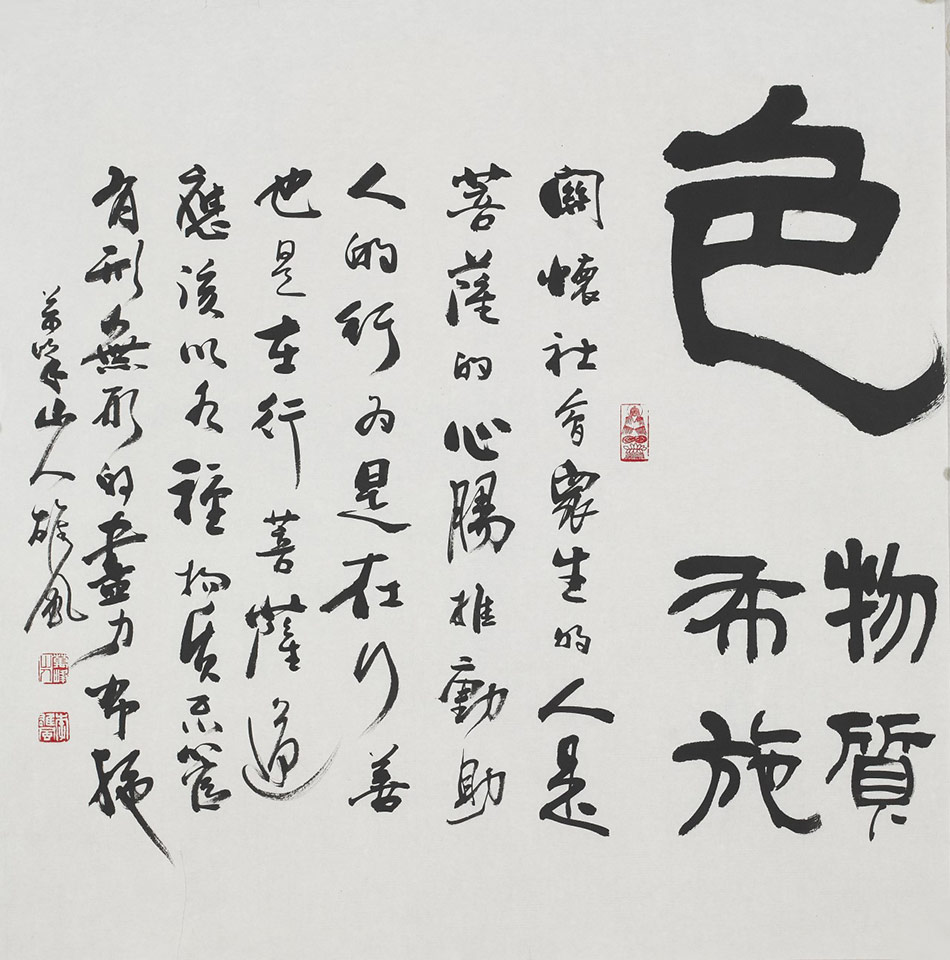 色
物質
布施
關懷社會眾生的人是
菩薩的心腸推動助
人的行為是在行善
也是在行菩薩道
應該以各種物質不管
有形無形的盡力布施
山人雄風